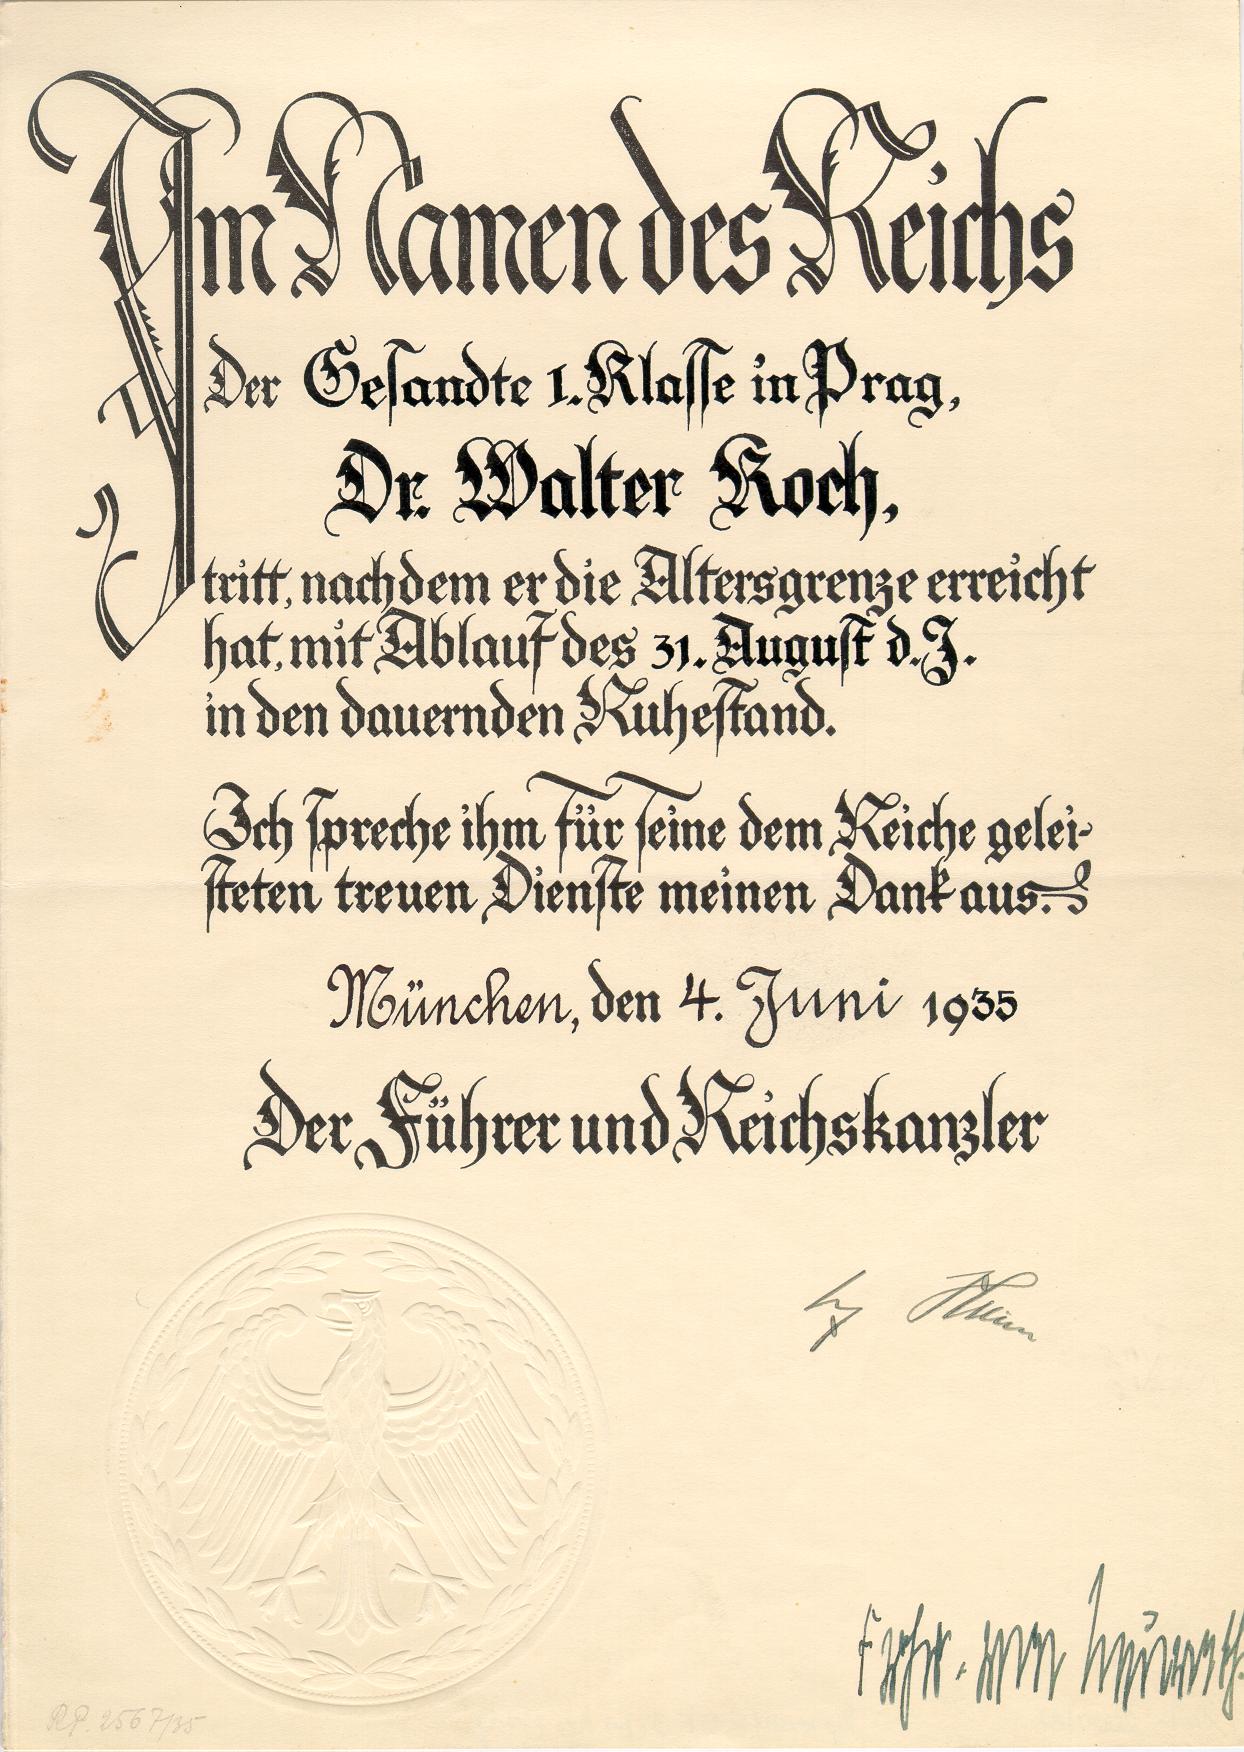 Im Namen des Reichs
Der Gesandte 1. Klasse in Prag,
Dr. Walter Koch,
tritt, nachdem er die Altersgrenze erreicht
hat, mit Ablauf des 31. August d. J.
in den dauernden Ruhestand.
Ich spreche ihm für seine dem Reiche gelei-
steten treuen Dienste meinen Dank aus.
München, den 4. Juni 1935
Der Führer und Reichskanzler
Frhr. von Neurath.
RP. 2567/35